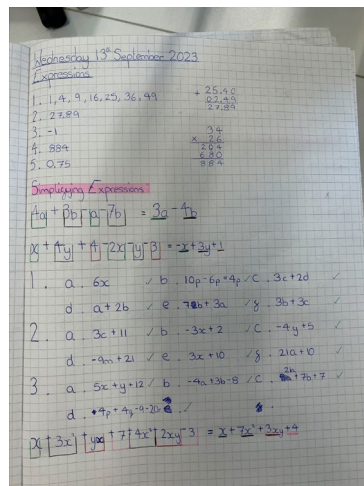 Wednesday 13th September 2023
Expressions
1. 1, 4, 9, 16, 25, 36, 49
+ 25.40
02.49
27.89
2. 27.89
3. -1
34
× 26
204
680
884
4. 884
5. 0.75
Simplifying Expressions
4a + 3b - a - 7b = 3a - 4b
x + 4y + 4 - 2x - y - 3 = -x + 3y + 1
1. a. 6x ✓ b. 10p - 6p = 4p ✓ c. 3c + 2d ✓
d. a + 2b ✓ e. 7b + 3a ✓ f. 3b + 3c ✓
2. a. 3c + 11 ✓ b. -3x + 2 ✓ c. -4y + 5 ✓
d. -9m + 21 ✓ e. 3x + 10 ✓ f. 21a + 10 ✓
3. a. 5x + y + 12 ✓ b. -4a + 3b - 8 ✓ c. 2a + 7b + 7 ✓
d. 4p + 4y - 9 - 20 ✓
x + 3x² + yx + 7 + 4x² + 2xy - 3 = x + 7x² + 3xy + 4